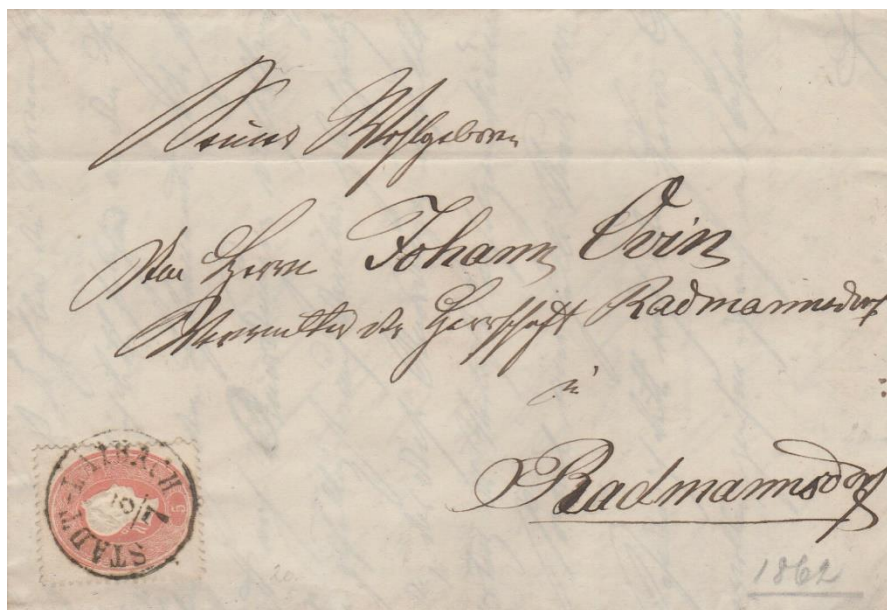 Seiner Wohlgeboren
Den Herrn Johann Ovin
Verwalter der Herrschaft Radmannsdorf
in
Radmannsdorf
STADT-LAIBACH
5
1862